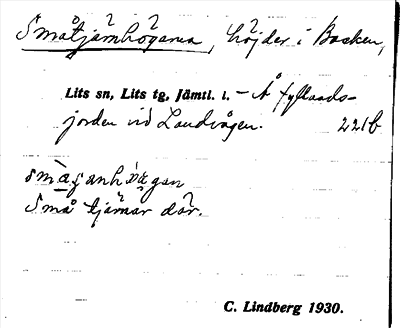 Småtjärnhögarna, höjder i Backen,
Lits sn, Lits tg, Jämtl. l. – Å fyllands-
jorden vid Landvägen. 221b
Små tjärnar där.
C. Lindberg 1930.